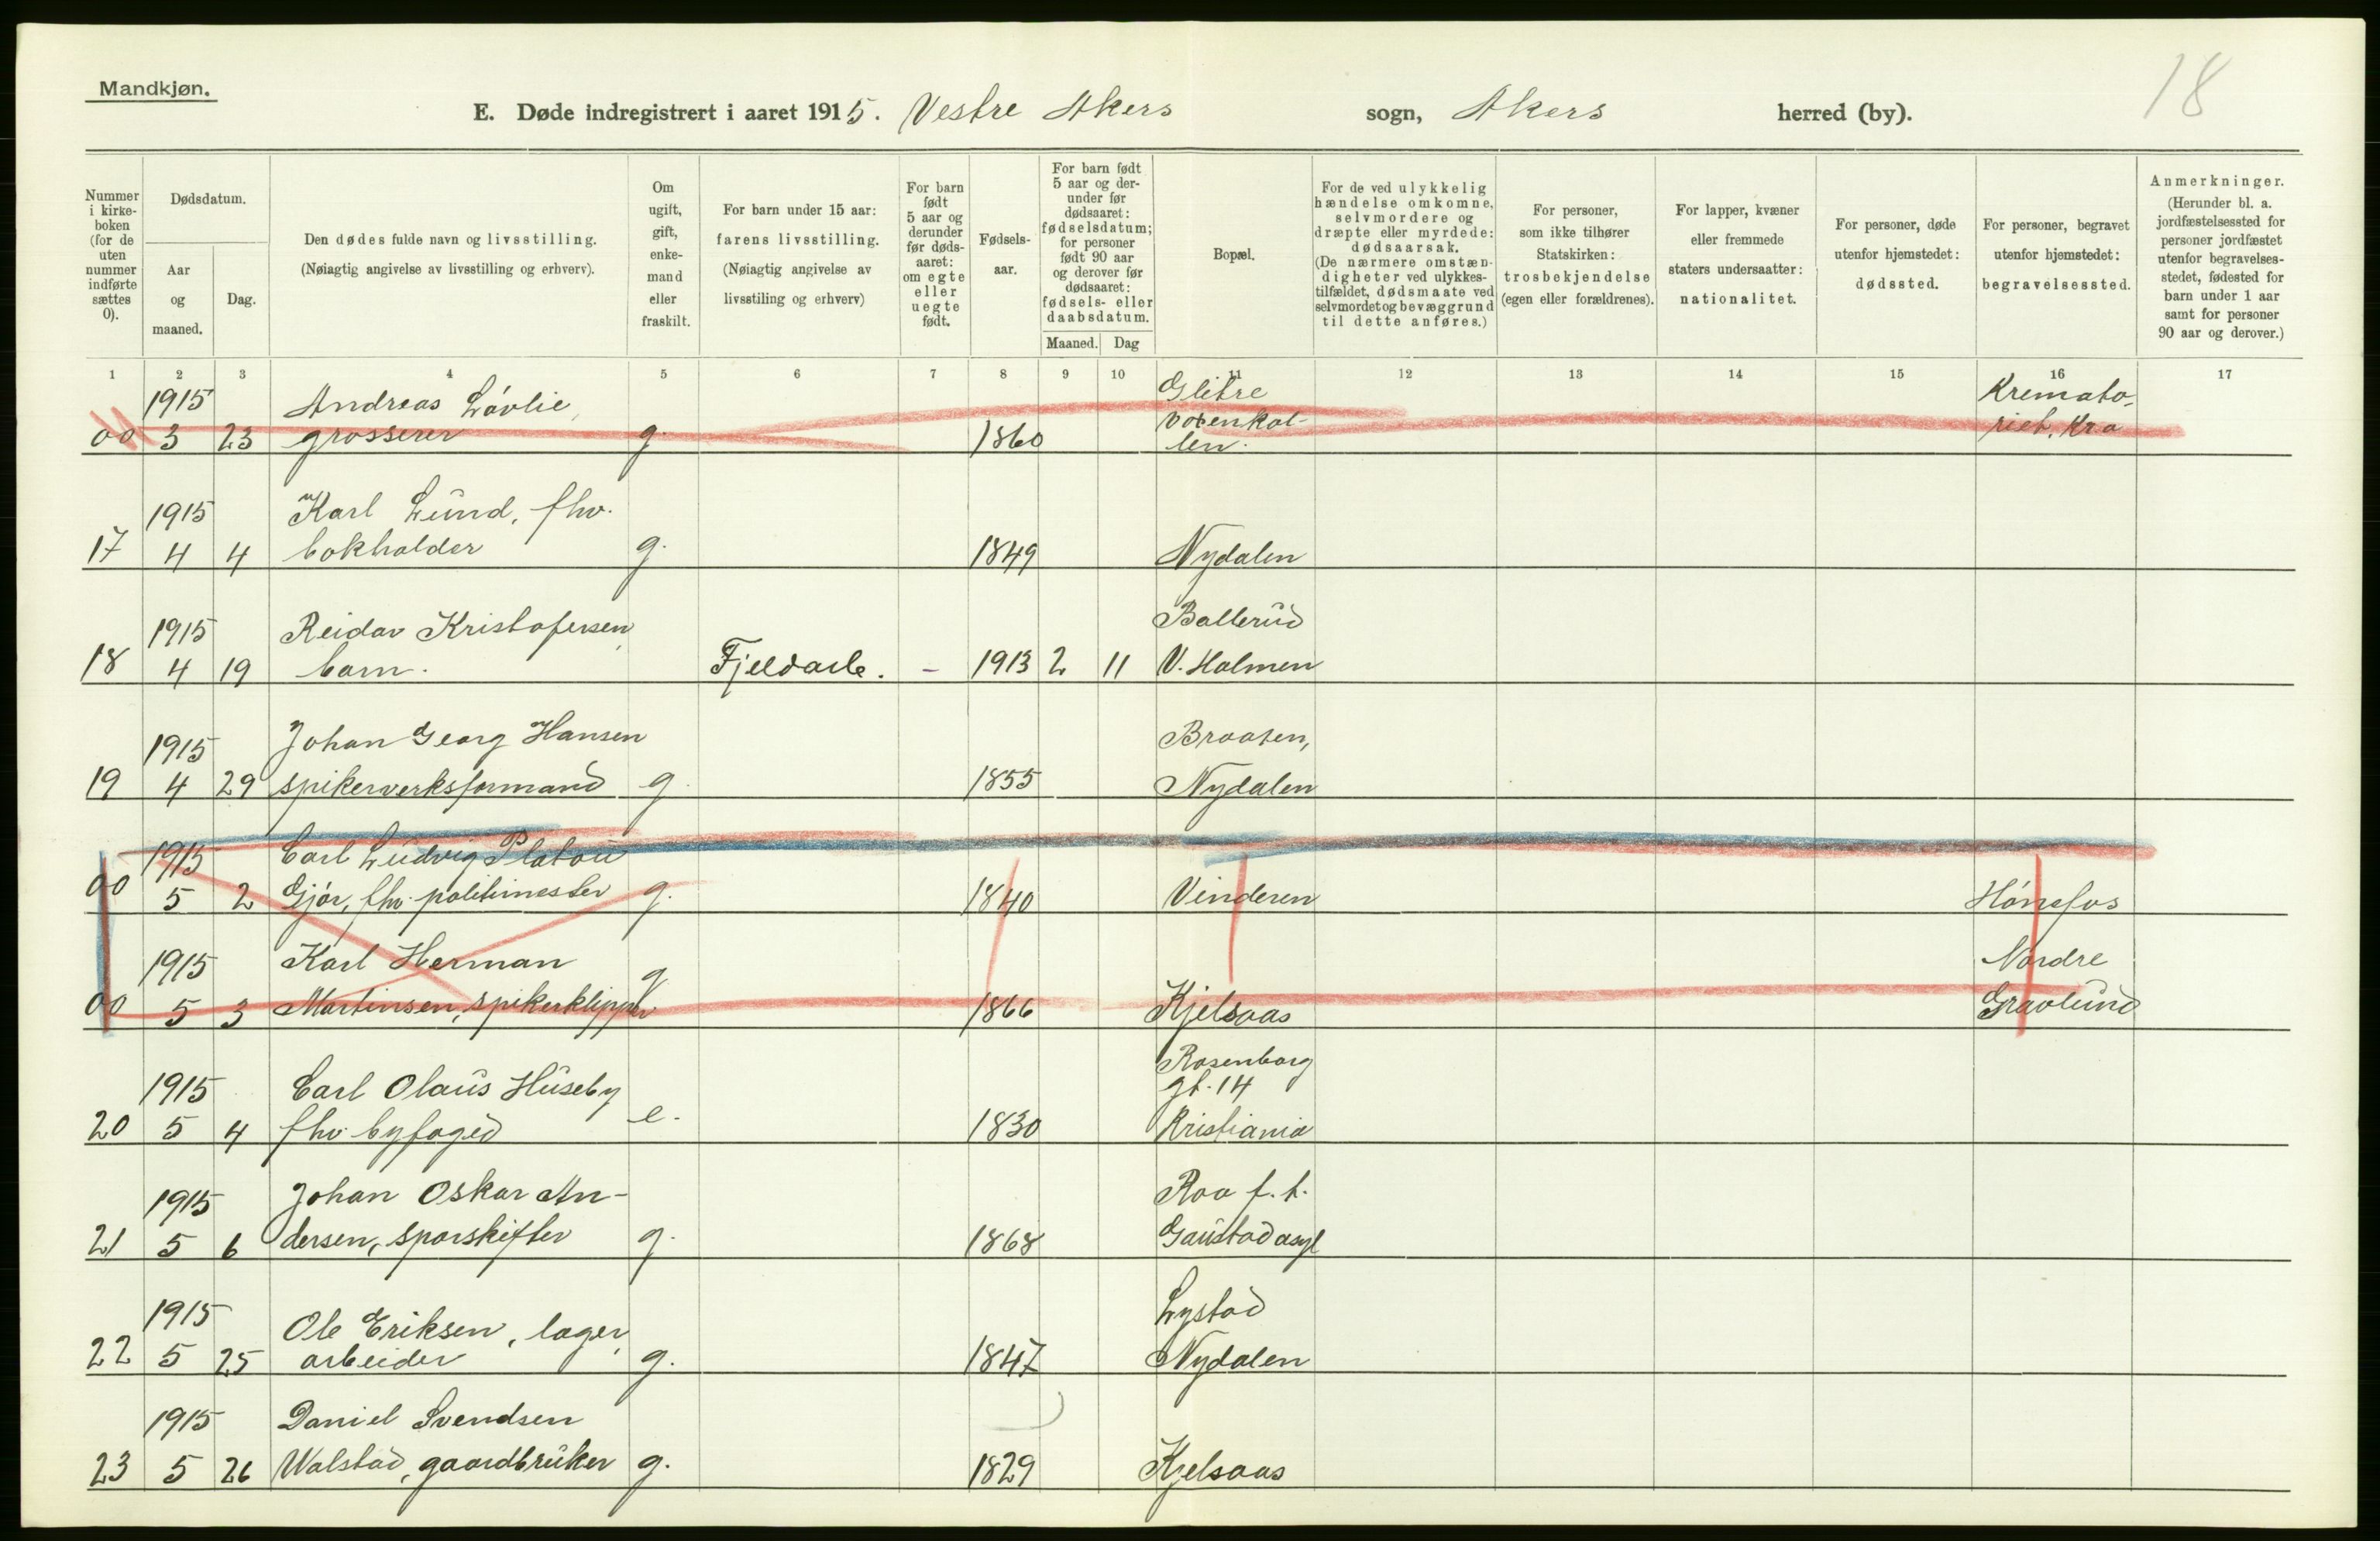 Mandkjøn.
18
E. Døde indregistrert i aaret 1915. Vestre Akers sogn, Akers herred (by).
Nummer i kirke-boken (for de uten nummer indførte sættes 0).
Dødsdatum.
Aar og maaned.
Dag.
Den dødes fulde navn og livsstilling.
(Nøiagtig angivelse av livsstilling og erhverv).
Om ugift, gift, enke-mand eller fraskilt.
For barn under 15 aar: farens livsstilling.
(Nøiagtig angivelse av livsstiling og erhverv)
For barn født 5 aar og derunder før døds-aaret: om egte eller uegte født.
Fødsels-aar.
For barn født 5 aar og der-under før dødsaaret: fødselsdatum; for personer født 90 aar og derover før dødsaaret: fødsels- eller daabsdatum.
Maaned. Dag
Bopæl.
For de ved ulykkelig hændelse omkomne, selvmordere og dræpte eller myrdede: dødsaarsak.
(De nærmere omstæn-digheter ved ulykkes-tilfældet, dødsmaate ved selvmord et og bevæggrund til dette anføres.)
For personer, som ikke tilhører Statskirken: trosbekjendelse (egen eller forældrenes).
For lapper, kvæner eller fremmede staters undersaatter: nationalitet.
For personer, døde utenfor hjemstedet: dødssted.
For personer, begravet utenfor hjemstedet: begravelsessted.
Anmerkninger.
(Herunder bl. a. jordfæstelsessted for personer jordfæstet utenfor begravelses-stedet, fødested for barn under 1 aar samt for personer 90 aar og derover.)
1 2 3 4 5 6 7 8 9 10 11 12 13 14 15 16 17
1915 Andreas Lóvlie, Glitre Kremato-
00 3 23 grosserer g. 1860 Voxenkol- riet, Kra
len.
1915 Karl Lund, fhv.
17 4 4 bokholder g. 1849 Nydalen
1915 Reidar Kristofersen, Ballerud
18 4 19 barn. Fjeldarb. - 1913 2 11 V. Holmen
1915 Johan Georg Hansen Braaten,
19 4 29 spikerverksformand g. 1855 Nydalen
1915 Carl Ludvig Platou
00 5 2 Gjör, fhv. politimester g. 1840 Vinderen Hónefos
1915 Karl Herman g Nordre
00 5 3 Martinsen, spikerklipper 1866 Kjelsaas Gravlund
Rosenborg
1915 Carl Olaus Huseby gt. 14
20 5 4 fhv. byfoged e. 1830 Kristiania
1915 Johan Oskar An- Roa f. t.
21 5 6 dersen, sporskifter g. 1868 Gaustad asyl
1915 Ole Eriksen, lager Lystad
22 5 25 arbeider g. 1847 Nydalen
1915 Daniel Svendsen
23 5 26 Walstad, gaardbruker g. 1829 Kjelsaas